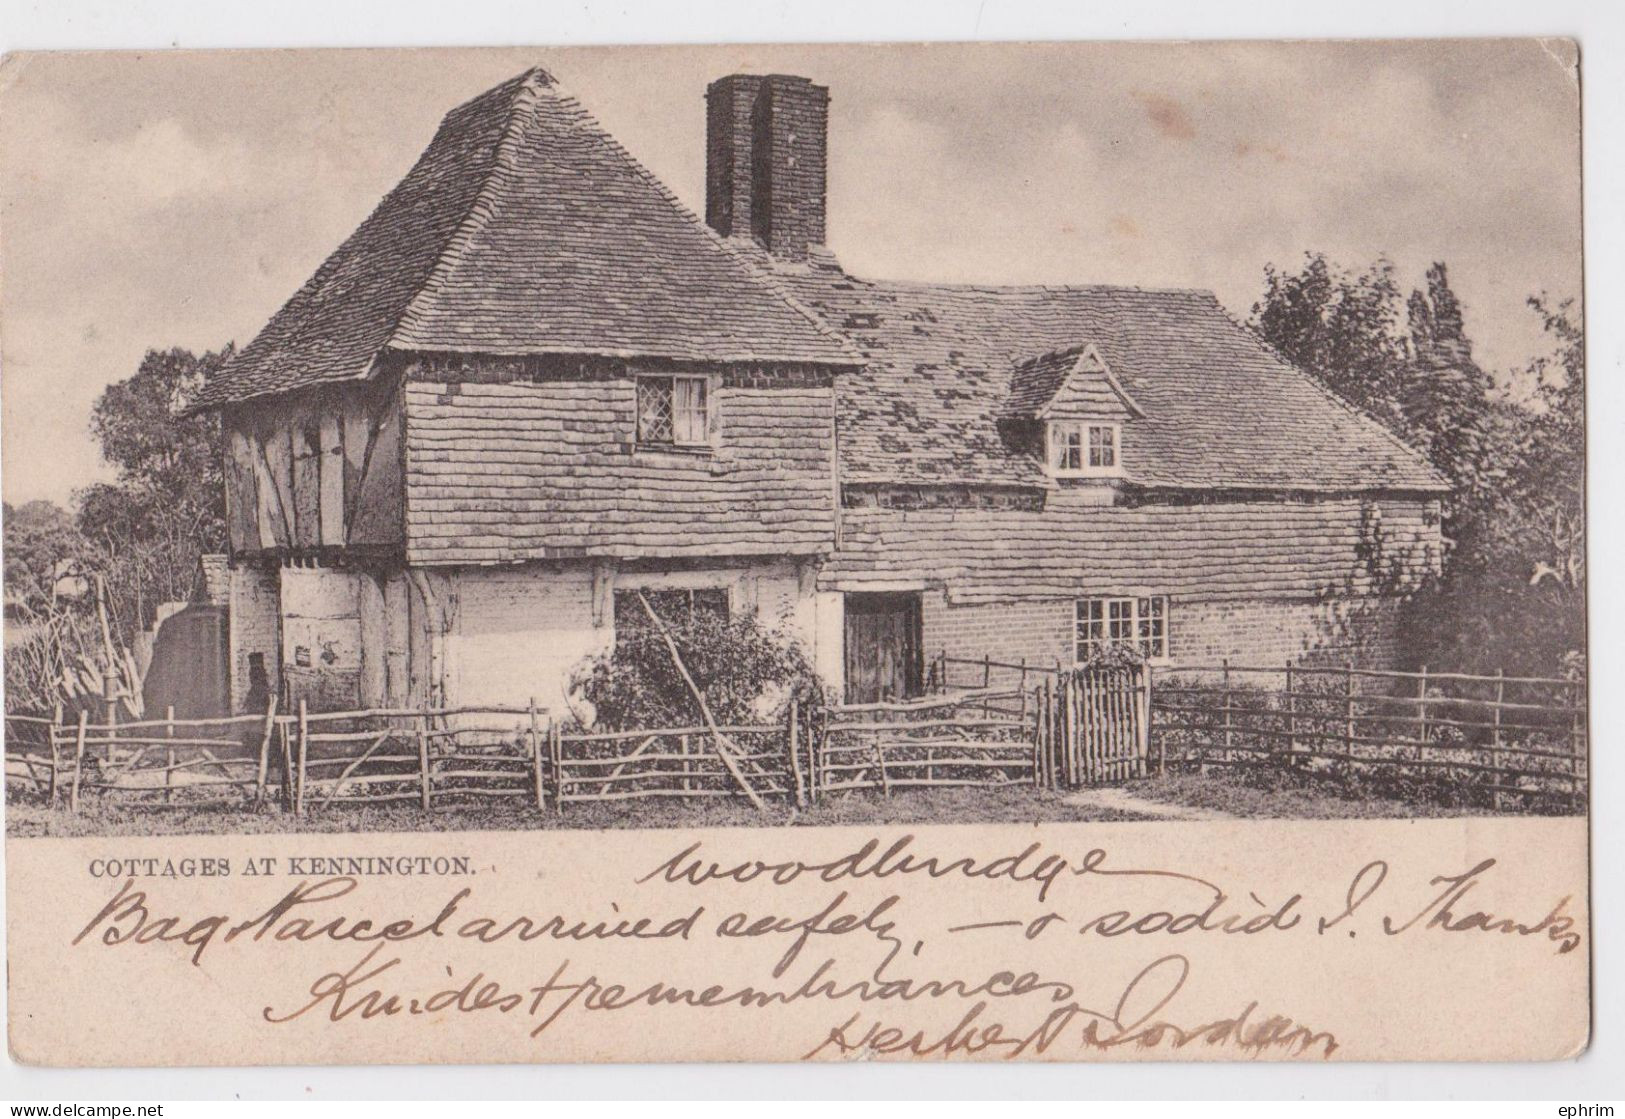 COTTAGES AT KENNINGTON.
Woodbridge
Bag & Parcel arrived safely, — & so did I. Thanks
Kindest remembrances
Herbert Jordan
delcampe.net
ephrim